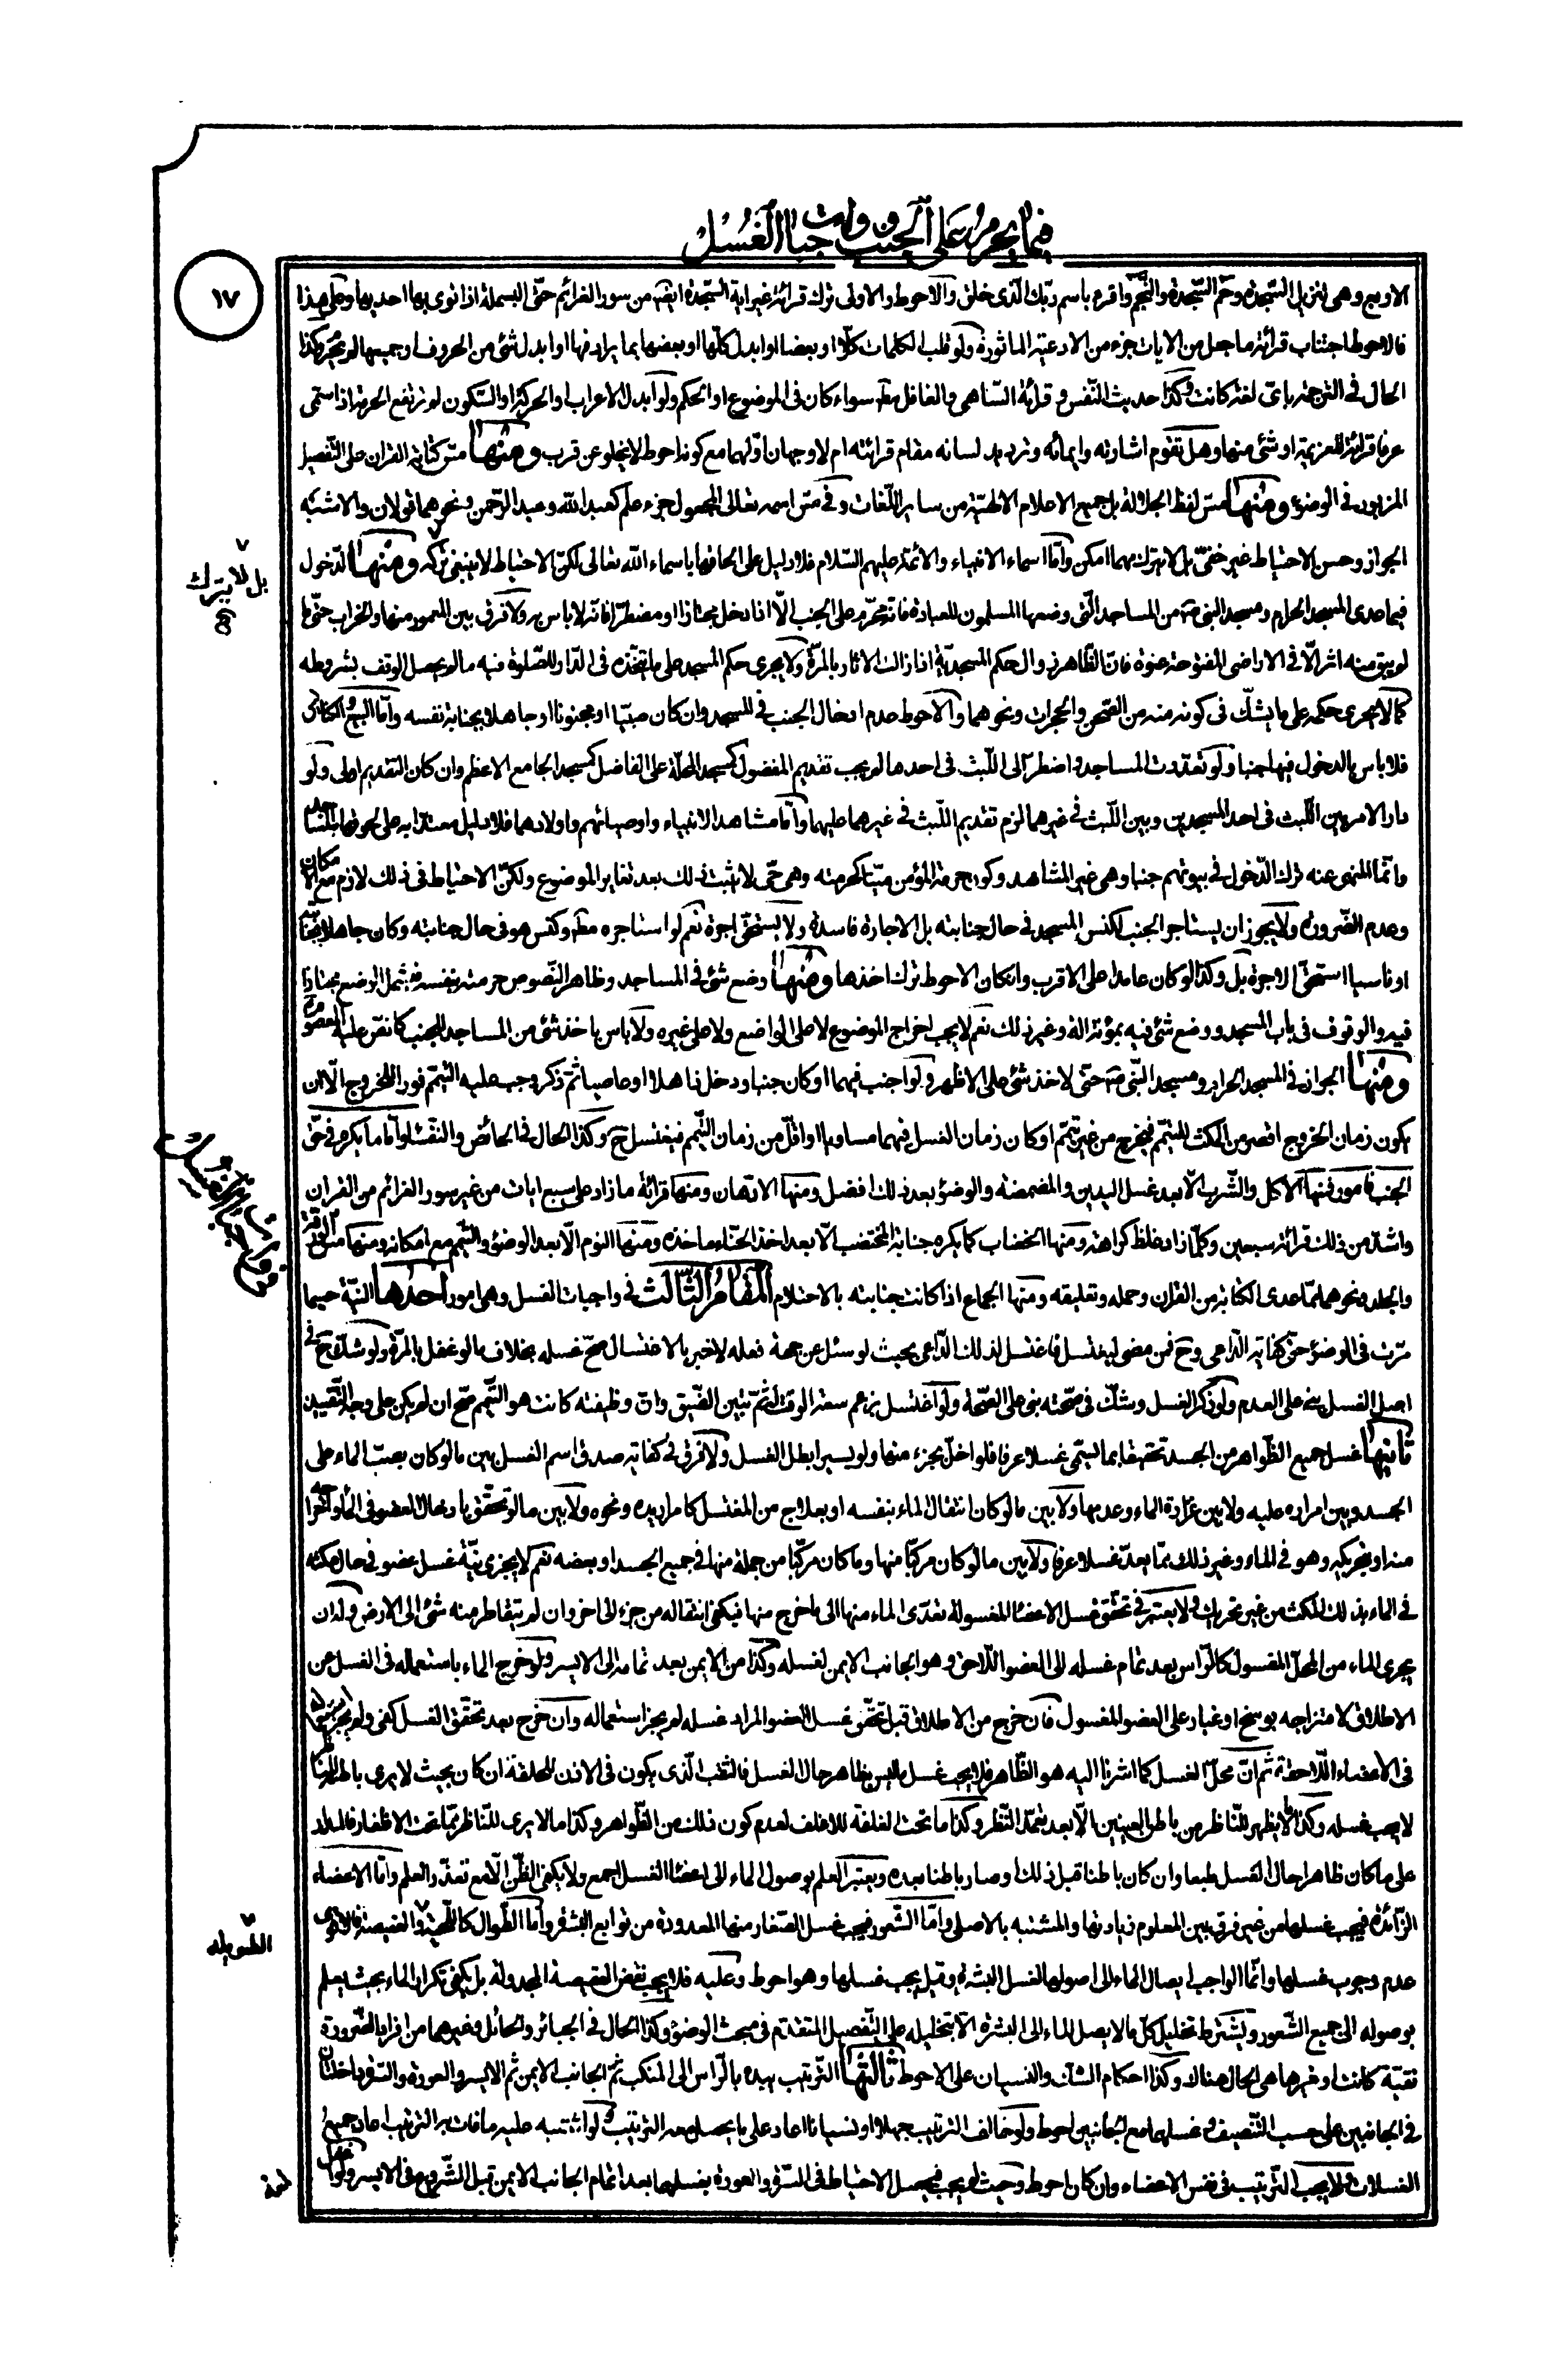 فيما يحرم على الجنب وفي واجبات الغسل
١٧
الاربع وهى تنزيل السّجدة وحم السّجدة والنّجم واقرء باسم ربّك الّذى خلق والاحوط والاولى ترك قرائة غير اية السّجدة ايضا من سور العزائم حتّى البسملة اذا نوى بها احديها وعلى هذا
فالاحوط اجتناب قرائة ما جعل من الايات جزء من الادعية الماثورة ولو قلب الكلمات كلّا او بعضا او ابدل كلّها او بعضها بما يرادفها او ابدل شئ من الحروف او جميعها لم يحرم وكذا
الحال في الترجمة باىّ لغة كانت وكذا حديث النّفس و قرائة السّاهى والغافل مطـ سواء كان فى الموضوع او الحكم ولو ابدل الاعراب او الحركة او السّكون لم ترتفع الحرمة اذا سمّى
عرفا قرائة للعزيمة او شئ منها وهل تقوم اشارته وايمائه وترديد لسانه مقام قرائته ام لا وجهان اوّلهما مع كونه احوط لا يخلو عن قرب ومنها مسّ كتابة القران على التّفصيل
المزبور في الوضوء ومنها مسّ لفظ الجلالة بل جميع الاعلام الالهيّة من ساير اللّغات وفى مسّ اسمه تعالى المجعول جزء علم كعبد الله وعبد الرّحمن ونحوهما قولان والاشبه
الجواز وحسن الاحتياط غير خفىّ بل لا يترك مهما امكن وامّا اسماء الانبياء والائمّة عليهم السّلام فلا دليل على الحاقها باسماء الله تعالى لكنّ الاحتياط لا ينبغى تركه ومنها الدّخول
بل لا يترك
فيما عدى المسجد الحرام ومسجد النبى ص من المساجد الّتى وضعها المسلمون للعبادة فانّه محرّم على الجنب الّا اذا دخل مجتازا او مضطرّا فانّه لا باس به ولا فرق بين المعمور منها والخراب حتّى ما
لم يبق منه اثر الّا فى الاراضى المفتوحة عنوة فانّ الظّاهر زوال حكم المسجديّة اذا زالت الاثار بالمرّة ولا يجرى حكم المسجد على ما يتّخذه فى الدّار للصّلوة فيه ما لم يحصل الوقف بشروطه
كما لا يجرى حكمه على ما يشكّ فى كونه منه من الصّحن والحجرات ونحوهما والاحوط عدم ادخال الجنب فى المسجد وان كان صبيّا او مجنونا او جاهلا بجنابة نفسه وامّا البيع والكنائس
فلا باس بالدخول فيها جنبا ولو تعدّدت المساجد واضطرّ الى اللّبث فى احدها لم يجب تقديم المفضول كمسجد المحلّة على الفاضل كمسجد الجامع الاعظم وان كان التقديم اولى ولو
دار الامر بين اللّبث فى احد المسجدين وبين اللّبث فى غيرهما لزم تقديم اللّبث فى غيرهما عليهما وامّا مشاهد الانبياء واوصيائهم واولادهما فلا دليل معتدّا به على لحوقها بالمساجد
وانّما المنهى عنه ترك الدّخول فى بيوتهم جنبا وهى غير المشاهد وكون حرمة المؤمن ميّتا كحرمته وهى حىّ لا يثبت ذلك بعد تغاير الموضوع ولكنّ الاحتياط فى ذلك لازم مع الامكان
وعدم الضّرورة ولا يجوز ان يستاجر الجنب لكنس المسجد فى حال جنابته بل الاجارة فاسدة ولا يستحقّ اجرة نعم لو استاجره مطـ وكنس هو فى حال جنابته وكان جاهلا بجنابته
او ناسيا استحقّ الاجرة بل وكذا لو كان عامدا على الاقرب وان كان الاحوط ترك اخذها ومنها وضع شئ فى المساجد وظاهر النّصوص حرمته بنفسه فيشمل الوضع مجتازا
فيه والوقوف فى باب المسجد ووضع شئ فيه بمؤنة الة وغير ذلك نعم لا يجب اخراج الموضوع لا على الواضع ولا على غيره ولا باس باخذ شئ من المساجد للجنب كما نصّ عليه المعصوم
ومنها الجواز فى المسجد الحرام ومسجد النّبى ص حتى لاخذ شئ على الاظهر ولو اجنب فيهما او كان جنبا ودخل ذاهلا او عاصيا ثمّ ذكر وجب عليه التيمّم فورا للخروج الّا ان
يكون زمان الخروج اقصر من المكث للتيمّم فيخرج من غير تيمّم او كان زمان الغسل فيهما مساويا او اقلّ من زمان التيمّم فيغتسل ح وكذا الحال فى الحائض والنفساء وامّا ما يكره فى حقّ
الجنب فامور فمنها الاكل والشّرب الّا بعد غسل اليدين والمضمضة والوضوء بعد ذلك افضل ومنها الادّهان ومنها قرائة ما زاد على سبع ايات من غير سور العزائم من القران
واشدّ من ذلك قرائة سبعين وكلّما زاد غلظ كراهة ومنها الخضاب كما يكره جنابة المختضب الّا بعد اخذ الحنّاء ماخذه ومنها النوم الّا بعد الوضوء والتيمّم مع امكانه ومنها مسّ ورق
والجلد ونحوهما ممّا عدى الكتابة من القران وحمله وتعليقه ومنها الجماع اذا كانت جنابته بالاحتلام المقام الثّالث فى واجبات الغسل وهى امور احدها النيّة حسبما
مرّت فى الوضوء حتى كفاية الدّاعى وح فمن مضى ليغتسل فاغتسل لذلك الدّاعى بحيث لو سئل عن جهة فعله لاخبر بالاغتسال صحّ غسله بخلاف ما لو غفل بالمرّة ولو شكّ ح فى
اصل الغسل بنى على العدم ولو ذكر الغسل وشكّ فى صحّته بنى على الصّحة ولو اغتسل بزعم سعة الوقت ثمّ تبيّن الضّيق وانّ وظيفته كانت هو التّيمّم صحّ ان لم يكن على وجه التّقييد
ثانيها غسل جميع الظّواهر من الجسد تحقيقا بما يسمّى غسلا عرفا فلو اخلّ بجزء منها ولو يسيرا بطل الغسل ولا فرق فى كفاية صدق اسم الغسل بين ما لو كان بصبّ الماء على
الجسد وبين امراره عليه ولا بين غزارة الماء وعدمها ولا بين ما لو كان انتقال الماء بنفسه او بعلاج من المغتسل كامرار يده ونحوه ولا بين ما لو تحقّق بادخال العضو فى الماء او اخراجه
منه او تحريكه وهو فى الماء وغير ذلك ممّا يعدّ غسلا عرفا ولا بين ما لو كان مركّبا منها وما كان مركّبا من جملة منها فى جميع الجسد او بعضه نعم لا يجزى نيّة غسل عضو فى حال مكثه
فى الماء بذلك المكث من غير تحريك ولا يعتبر فى تحقّق غسل الاعضاء المغسولة تعدّى الماء منها الى ما خرج منها فيكفى انتقاله من جزء الى اخر وان لم يتقاطر منه شئ الى الارض ولا ان
يجرى الماء من المحلّ المغسول كالرّاس بعد تمام غسله الى العضو اللّاحق وهو الجانب الايمن لغسله وكذا من الايمن بعد تمامه الى الايسر ولو خرج الماء باستعماله فى الغسل عن
الاطلاق لامتزاجه بوسخ او غبار على العضو المغسول فان خرج من الاطلاق قبل تحقّق غسل العضو المراد غسله لم يجز استعماله وان خرج بعد تحقّق الغسل كفى ولم يجز استعماله
فى الاعضاء اللّاحقة ثمّ انّ محلّ الغسل كما اشرنا اليه هو الظّاهر فلا يجب غسل ما ليس بظاهر حال الغسل فالثقب الّذى يكون فى الاذن للحلقة ان كان بحيث لا يرى باطنه
لا يجب غسله وكذا ما لا يظهر للنّاظر من باطن العينين الّا بعد تعمّد النّظر وكذا ما تحت الغلفة للاغلف لعدم كون ذلك من الظّواهر وكذا ما لا يرى للنّاظر ممّا تحت الاظفار فالمدار
على ما كان ظاهرا حال الغسل طبعا وان كان باطنا قبل ذلك او صار باطنا بعده ويعتبر العلم بوصول الماء الى اعضاء الغسل اجمع ولا يكفى الظّنّ الّا مع تعذّر العلم وامّا الاعضاء
الزّائدة فيجب غسلها من غير فرق بين المعلوم زيادتها والمشتبه بالاصلى وامّا الشّعور فيجب غسل الصّغار منها المعدودة من توابع البشرة وامّا الطّوال كاللّحية والعقيصة فالاقوى
الطّويله
عدم وجوب غسلها وانّما الواجب ايصال الماء الى اصولها لغسل البشرة وقيل يجب غسلها وهو احوط وعليه فلا يجب نقض العقيصة المجدولة بل يكفى تكرار الماء بحيث يعلم
بوصوله الى جميع الشّعور ويشترط تخليل كلّ ما لا يصل الماء الى البشرة الّا بتخليله على التّفصيل المتقدّم فى مبحث الوضوء وكذا الحال فى الجبائر والحائل وغيرهما من افراد الضّرورة
تقيّة كانت او غيرها هى الحال هنالك وكذا احكام الشّكّ والنسيان على الاحوط ثالثها التّرتيب يبدء بالرّاس الى المنكب ثمّ الجانب الايمن ثمّ الايسر والعورة والسّرة داخلتان
فى الجانبين على حسب التّنصيف وغسلهما مع الجانبين احوط ولو خالف الترتيب جهلا او نسيانا اعاد على ما يحصل معه الترتيب ولو اشتبه عليه ما فات به الترتيب اعاد جميع
الغسلات ولا يجب التّرتيب فى نفس الاعضاء وان كان احوط وحيث لم يجب فيحصل الاحتياط فى السّرة والعورة بغسلهما بعد اتمام الجانب الايمن قبل الشّروع فى الايسر ولو اغفل